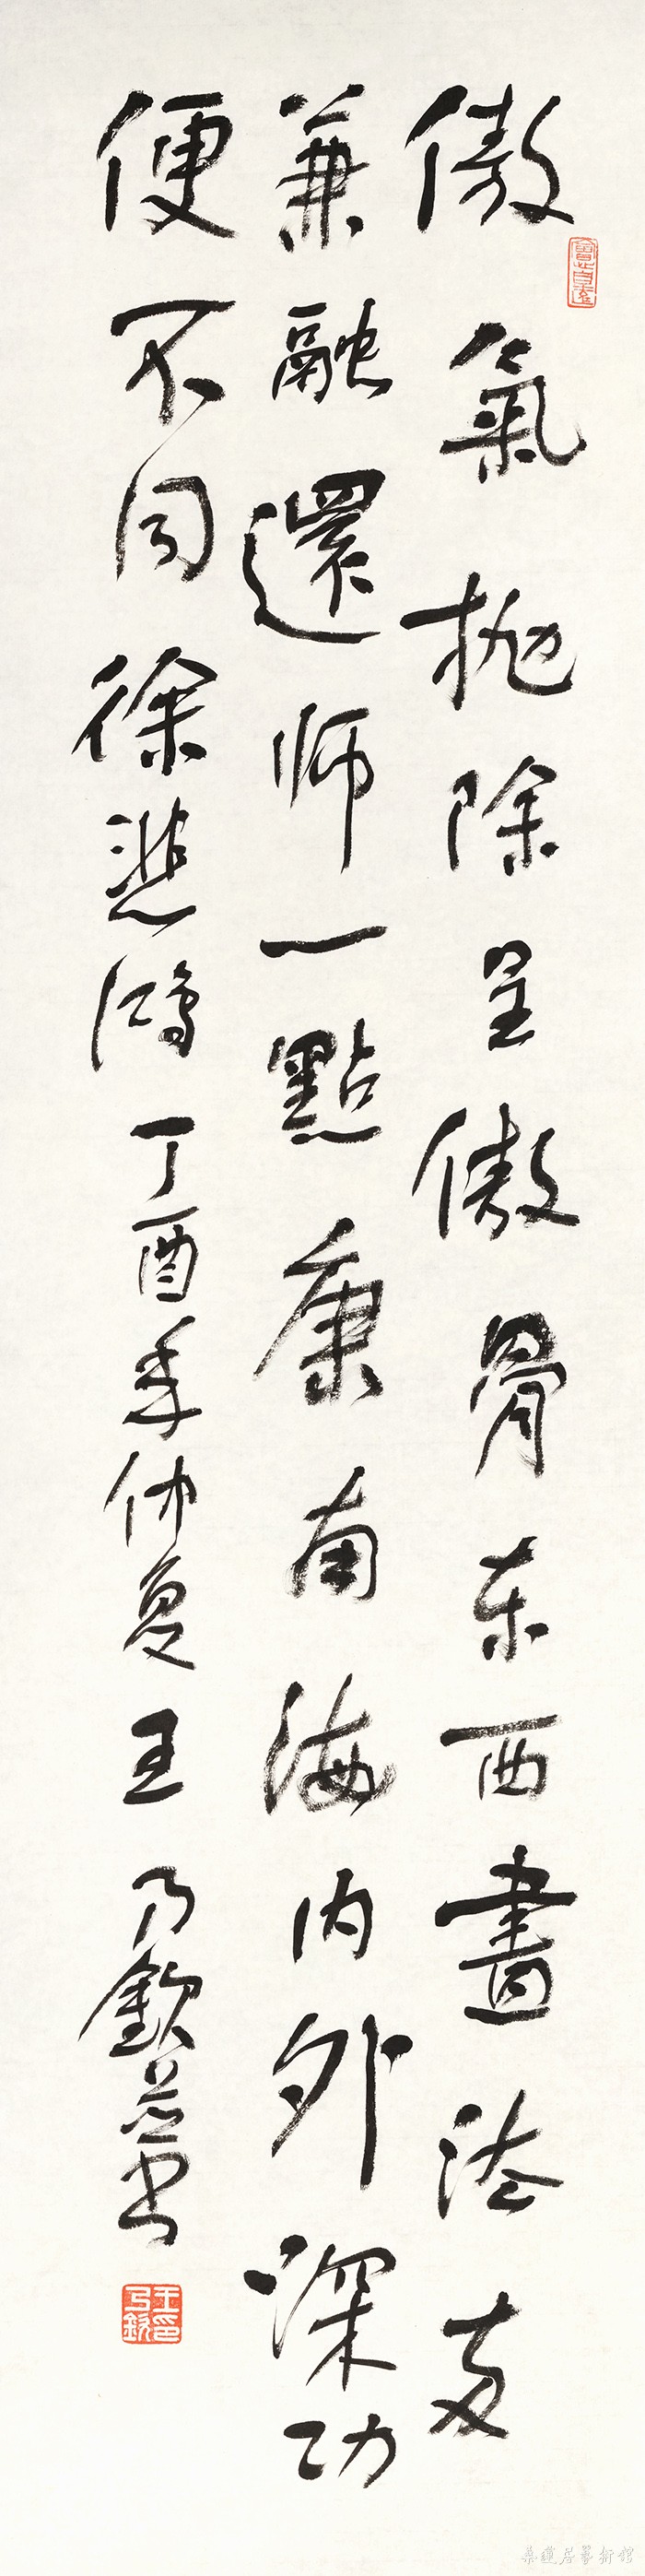 傲氣拋除呈傲骨東西畫法
兼融還師一點康南海內外深功
便不同 徐悲鴻 丁酉年仲夏 王乃欽並書
王乃欽印
蓮居藝術館